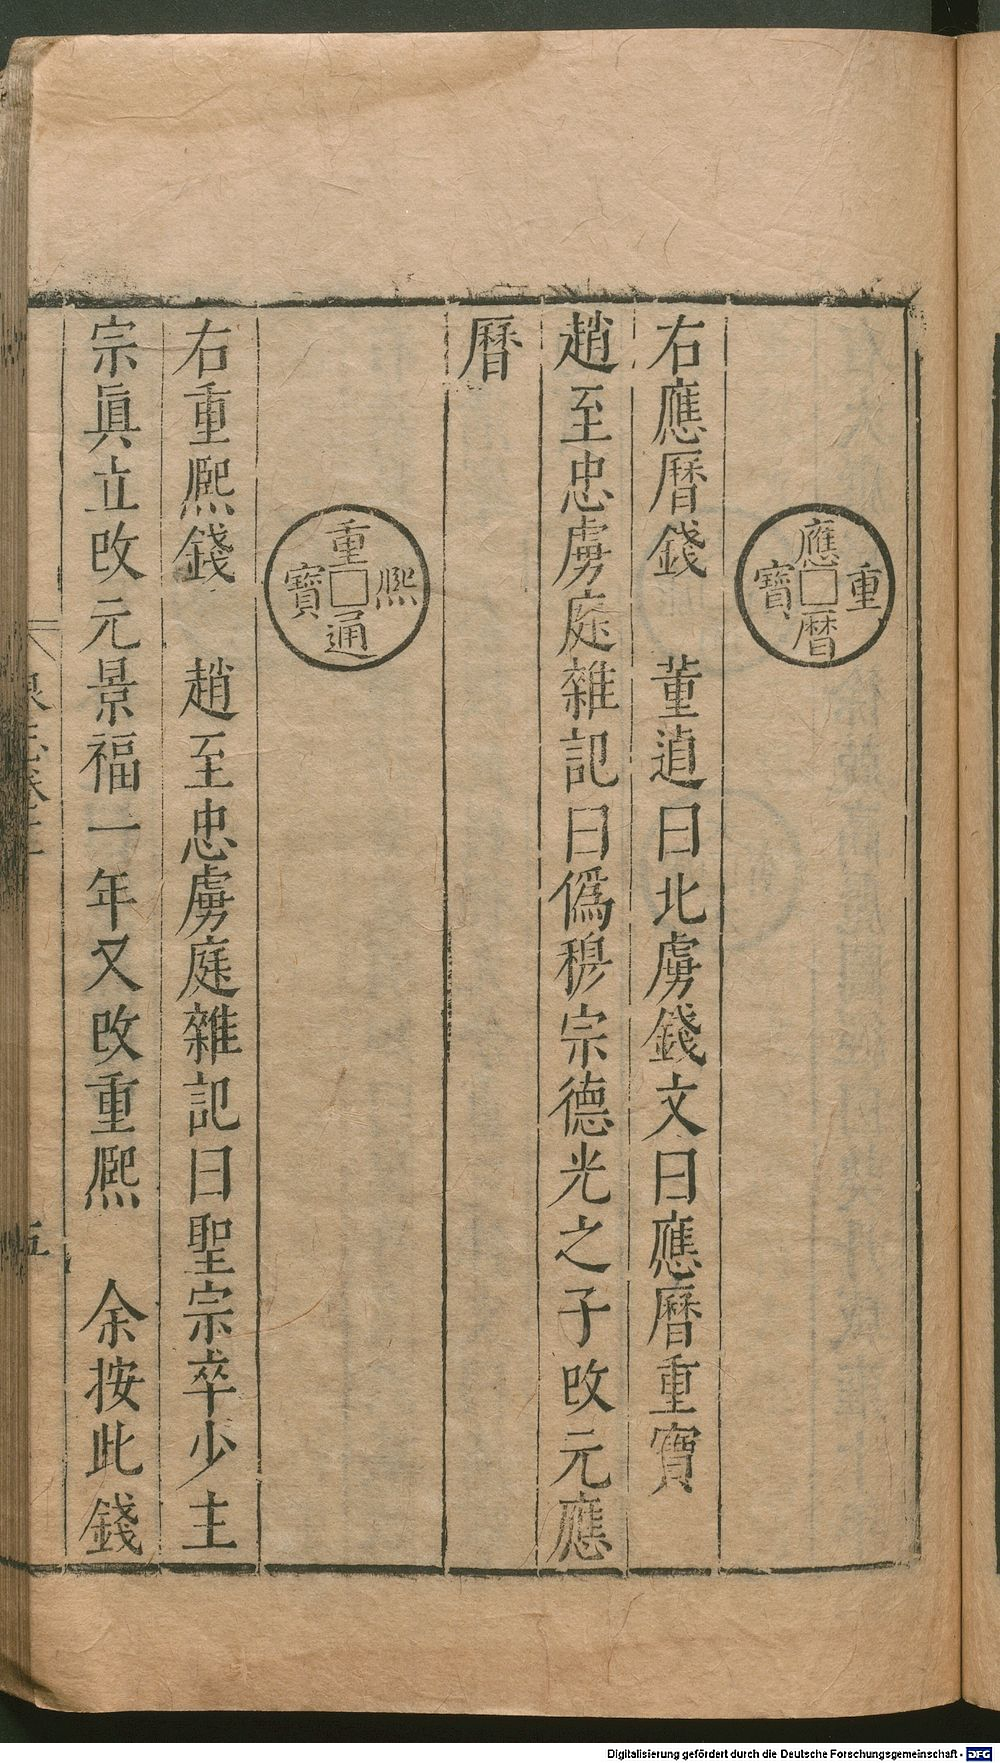 應曆重寶
右應曆錢　董逌曰北虜錢文曰應曆重寶
趙至忠虜庭雜記曰僞穆宗德光之子改元應
曆
重熙通寶
右重熙錢　趙至忠虜庭雜記曰聖宗卒少主
宗眞立改元景福一年又改重熙　余按此錢
泉志卷十一
五
Digitalisierung gefördert durch die Deutsche Forschungsgemeinschaft - DFG